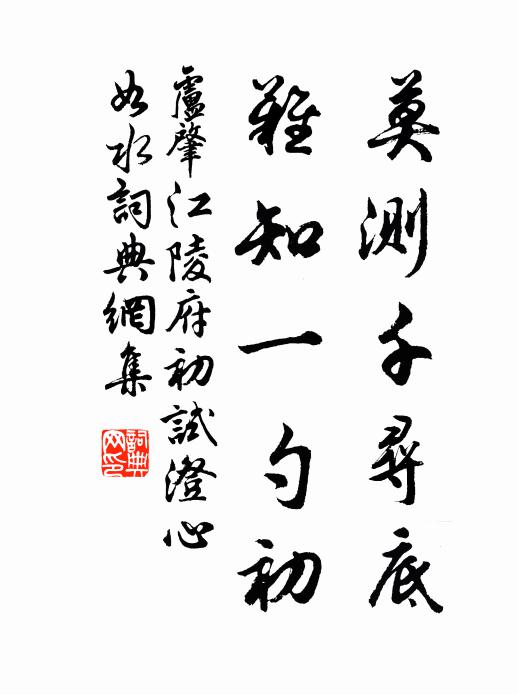 莫測千尋底
難知一勺初
盧肇江陵府初試澄心
如水詞典網集
詞典
网印